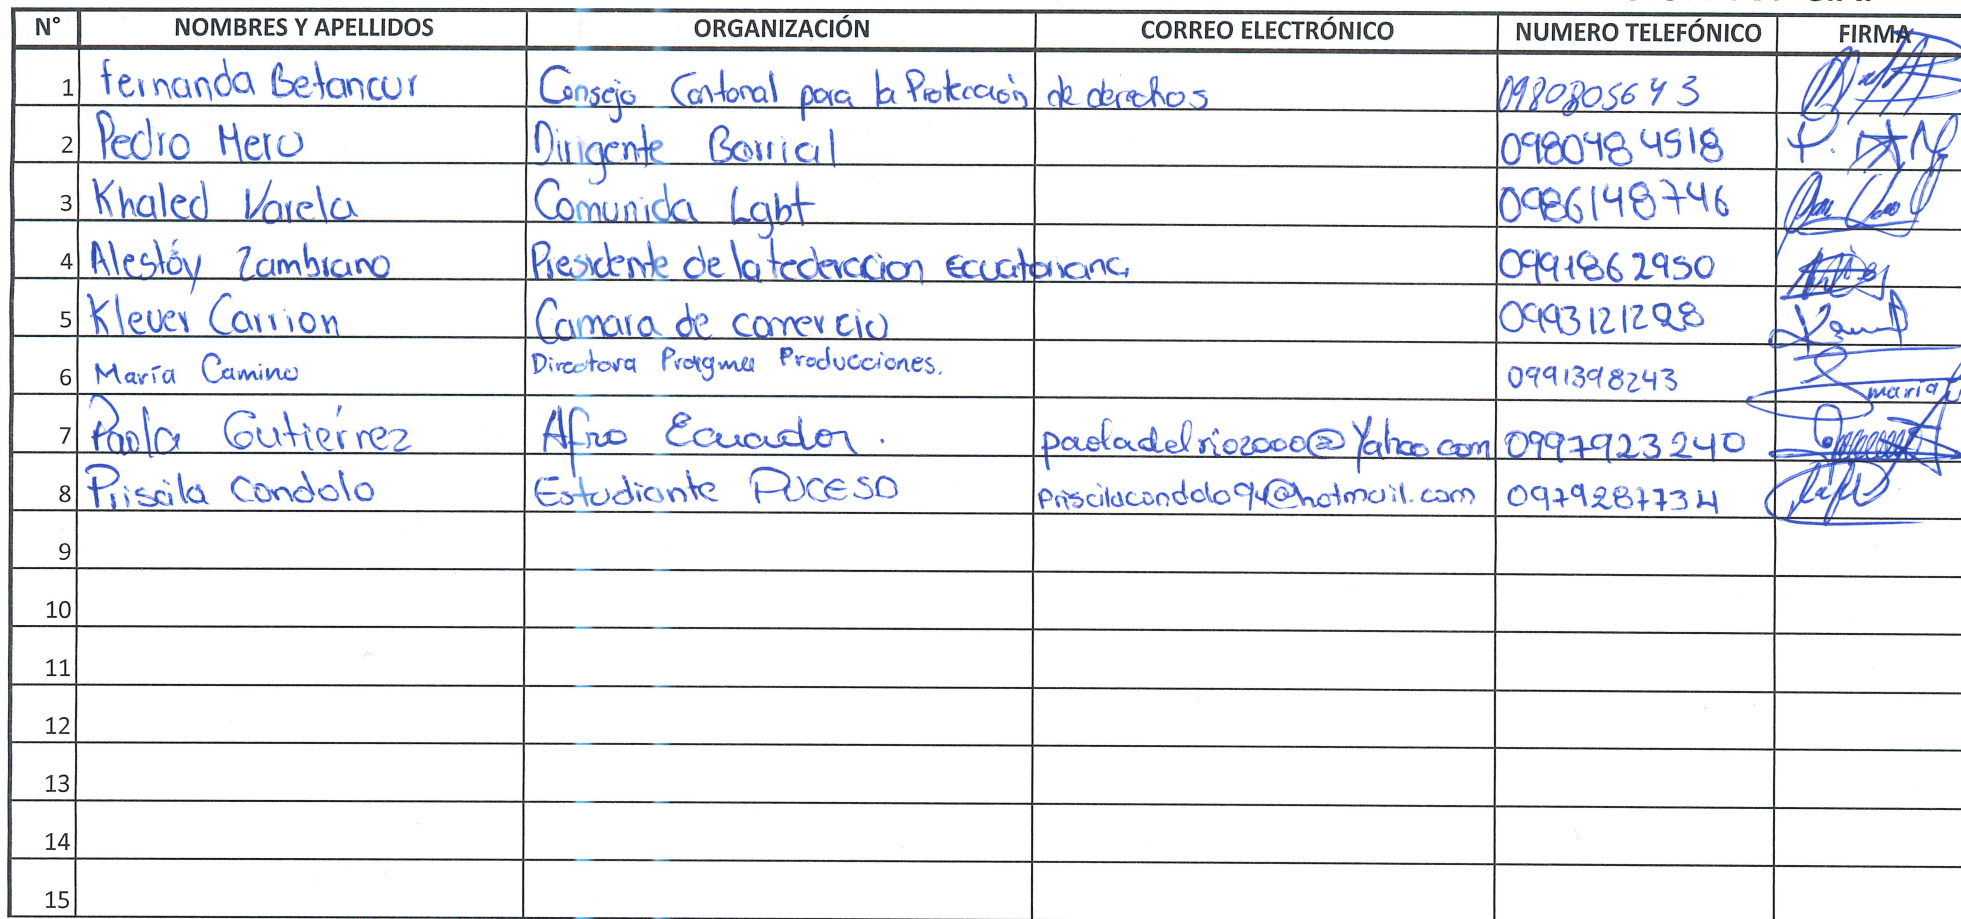 N° NOMBRES Y APELLIDOS ORGANIZACIÓN CORREO ELECTRÓNICO NUMERO TELEFÓNICO FIRMA
1 Fernanda Betancur Consejo Cantonal para la Protección de derechos 0980805643
2 Pedro Mero Dirigente Barrial 0980484518
3 Khaled Varela Comunida Lgbt 0986148746
4 Alestóy Zambrano Presidente de la federación Ecuatoriana 0991862950
5 Klever Carrion Camara de comercio 0993121228
6 María Camino Directora Pragma Producciones. 0991398243 maria
7 Paola Gutiérrez Afro Ecuador. paoladelrio2000@Yahoo.com 0997923240
8 Priscila Condolo Estudiante PUCESD priscilacondolo94@hotmail.com 0979287734
9
10
11
12
13
14
15